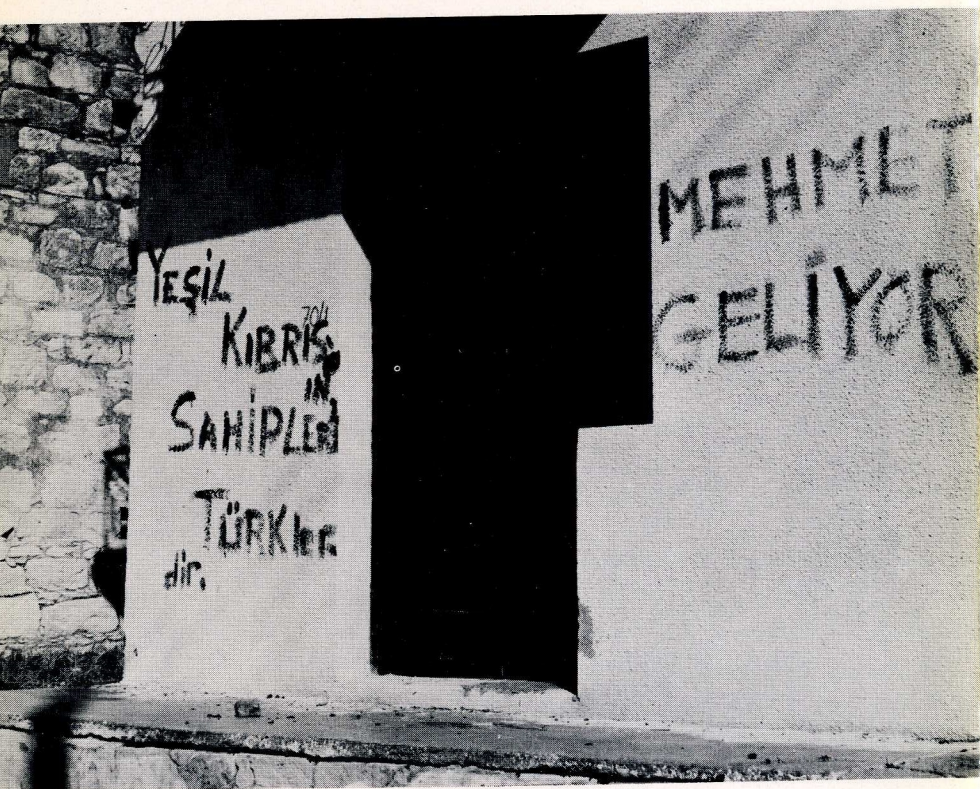 YEŞİL
704
KIBRIS,
IN
SAHİPLERİ
TÜRKler
dir.
MEHMET
GELİYOR